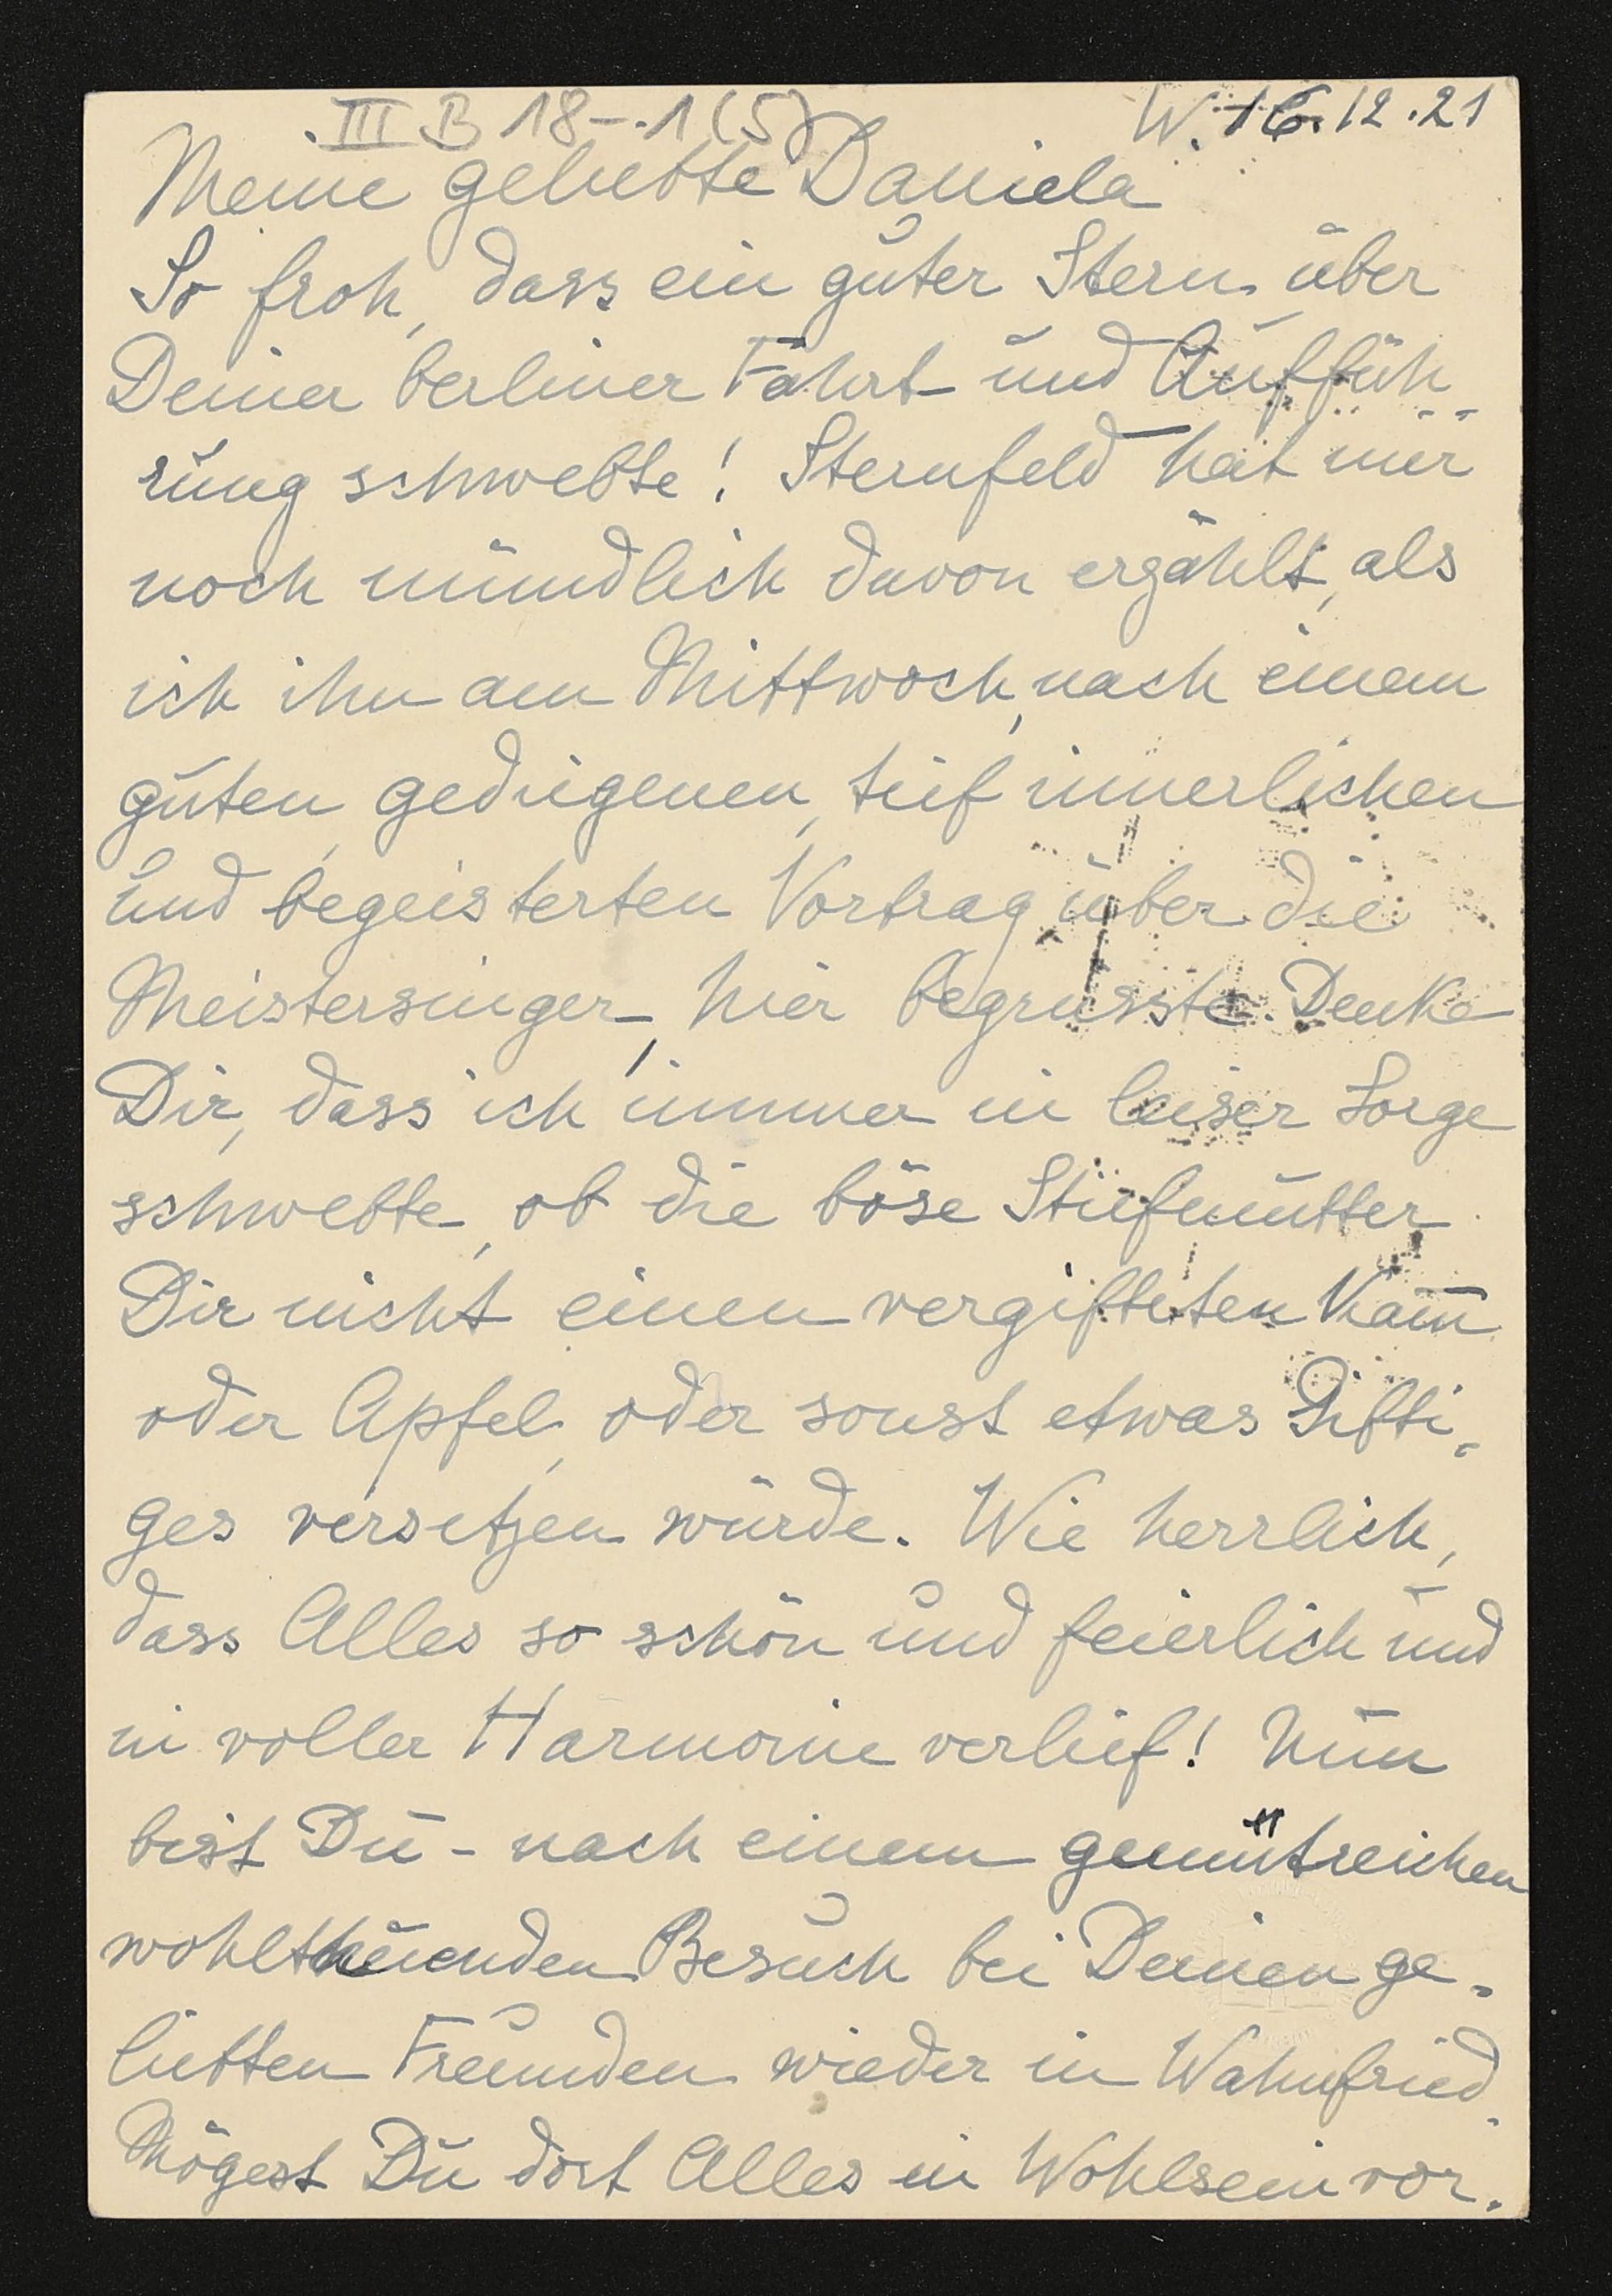 III B 18-.1(5)
W. 16.12.21
Meine geliebte Daniela
So froh, dass ein guter Stern über
Deiner berliner Fahrt und Auffüh-
rung schwebte! Sternfeld hat mir
noch mündlich davon erzählt, als
ich ihn am Mittwoch, nach einem
guten, gediegenen, tief innerlichen
und begeisterten Vortrag über die
Meistersinger, hier begrüsste. Denke
Dir, dass ich immer in leiser Sorge
schwebte, ob die böse Stiefmutter
Dir nicht einen vergifteten Kam̅
oder Apfel, oder sonst etwas Gifti-
ges versetzen würde. Wie herrlich,
dass Alles so schön und feierlich und
in voller Harmonie verlief! Nun
bist Du - nach einem gemütreichen
wohlthuenden Besuch bei Deinen ge-
liebten Freunden wieder in Wahnfried.
Mögest Du dort Alles in Wohlsein vor-